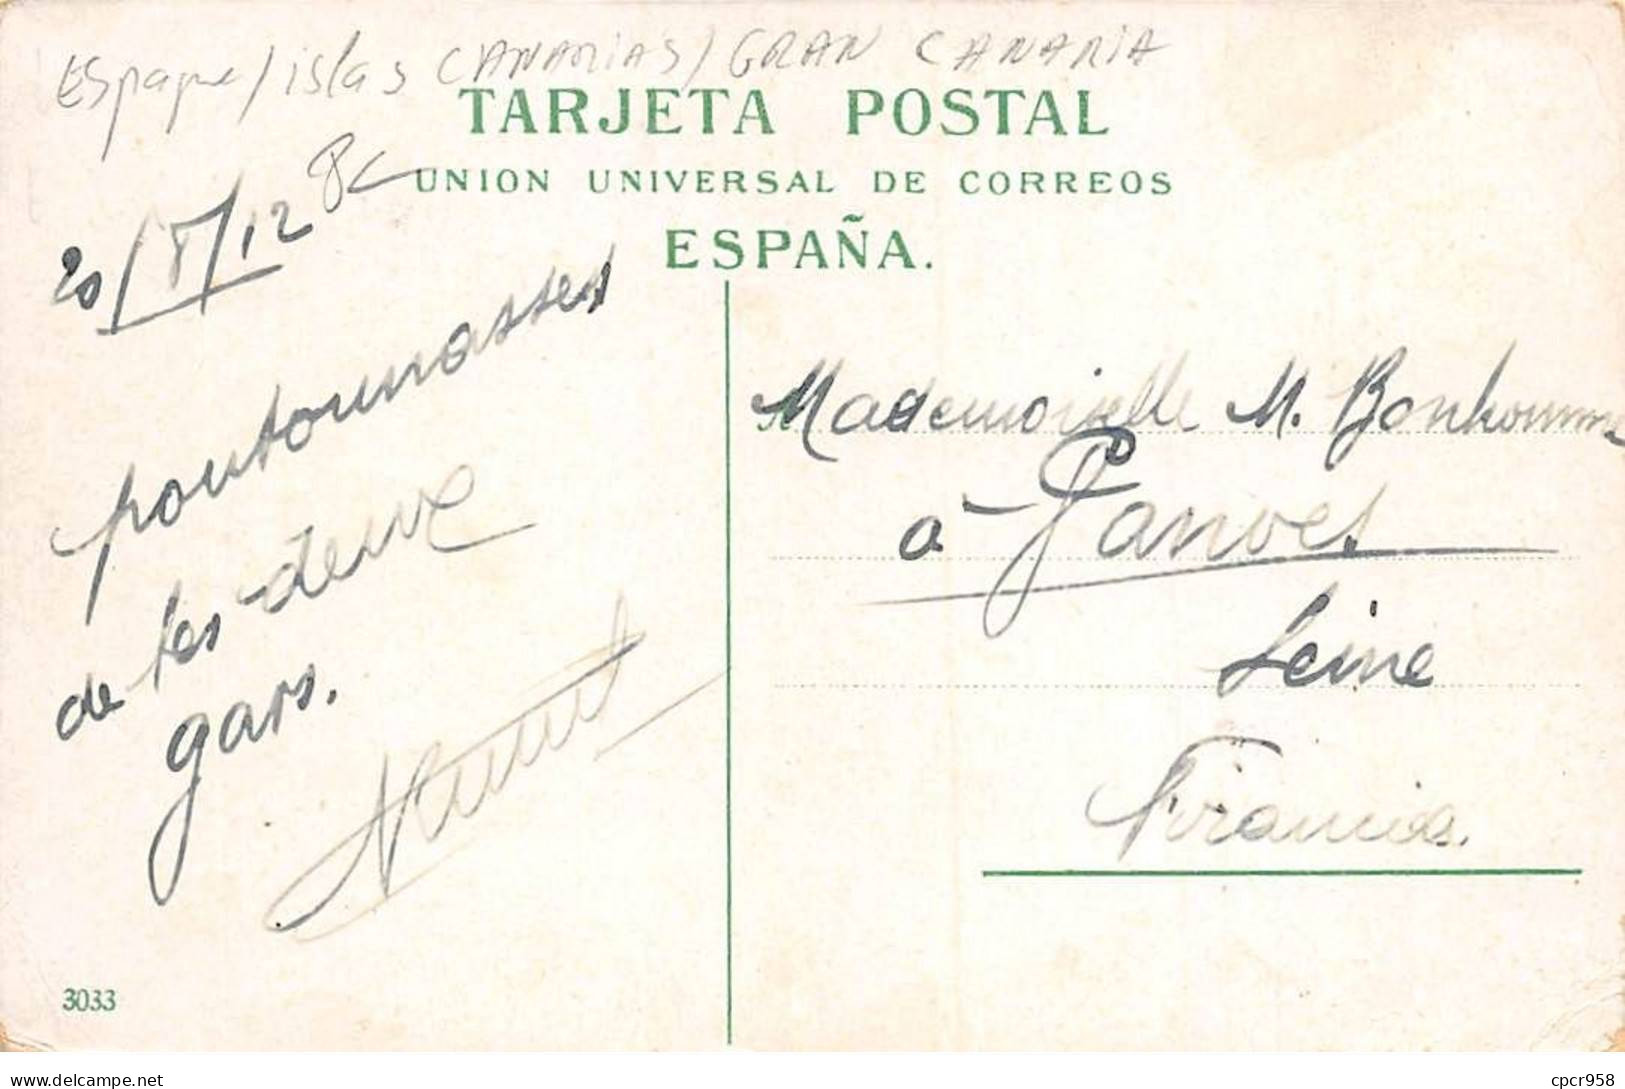 Espagne/islas CANARIAS/GRAN CANARIA
TARJETA POSTAL
UNION UNIVERSAL DE CORREOS
ESPAÑA.
20/8/12
de tes deux
gars.
Mademoiselle M. Bonhomme
à Vanves
Seine
Francia.
3033
delcampe.net
cpcr958